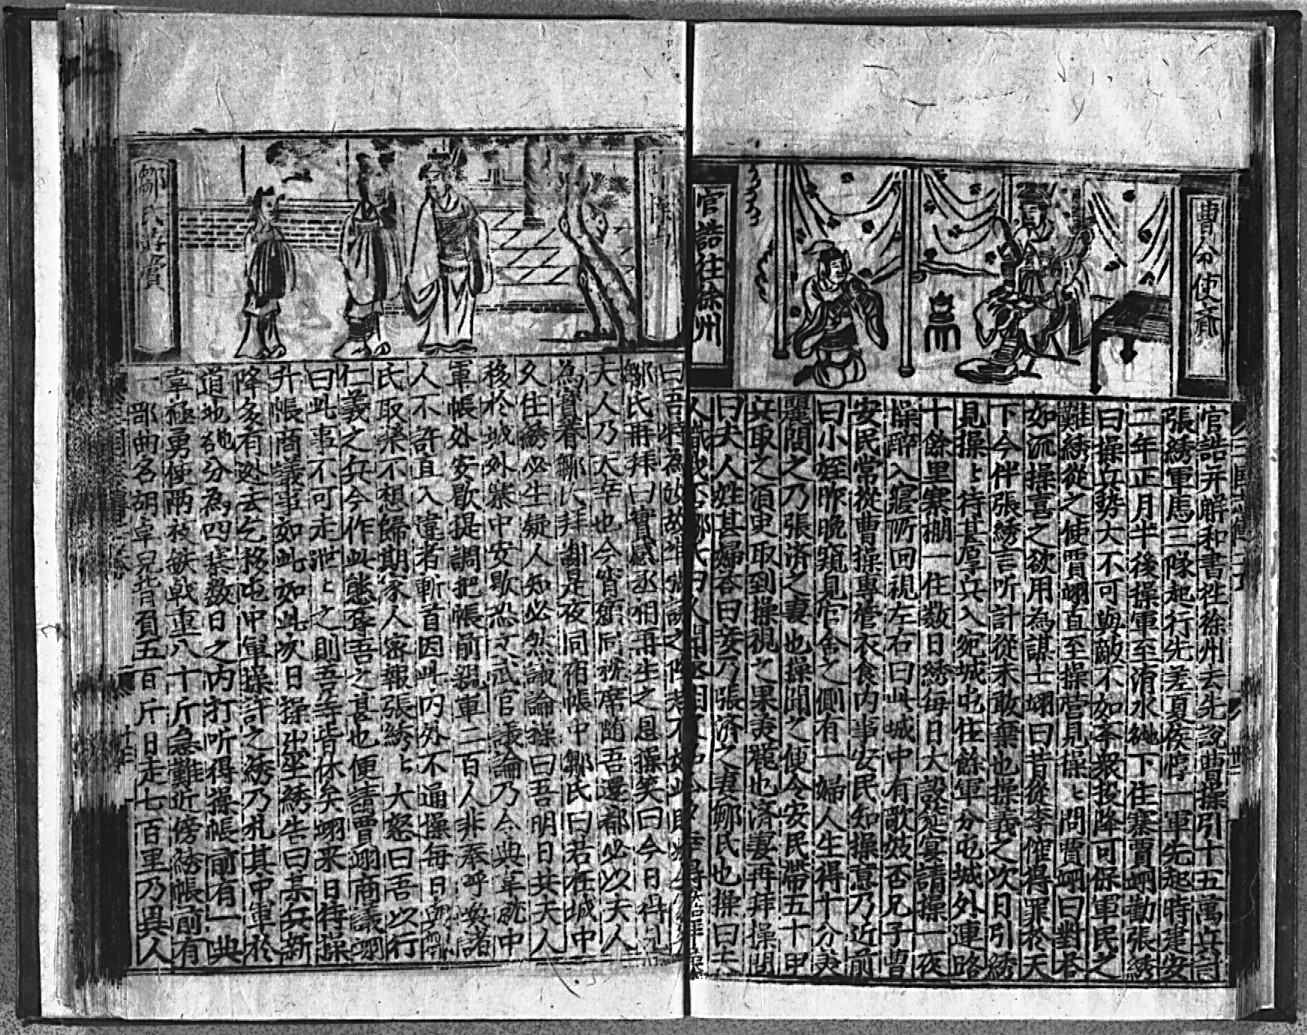 曹公使
官誥往徐州
官誥并解和書往徐州去先說曹操引十五萬兵討
張綉軍馬三隊起行先差夏侯惇一軍先起時建安
二年正月半後操軍至淯水地下住寨賈詡勸張綉
曰操兵勢大不可與敵不如率衆投降可保軍民之
難綉從之使賈詡直至操營見操〻問賈詡曰對答
如流操喜之欲用為謀士詡曰昔從李傕得罪於天
下今伴張綉言听計從未敢棄也操義之次日引綉
見操〻待甚厚兵入宛城屯住餘軍分屯城外連路
十餘里寨棚一住数日綉每日大設筵宴請操一夜
操醉入寢所回視左右曰此城中有歌妓否兄子曹
安民常從曹操專管衣食内事安民知操意乃近前
曰小姪昨晚窺見官舍之側有一婦人生得十分美
麗問之乃張済之妻也操聞之便令安民帶五十甲
兵取之須臾取到操視之果美麗也済妻再拜操問
曰夫人姓甚婦答曰妾乃張済之妻鄒氏也操曰夫
鄒氏好
鄒氏再拜曰實感丞相再生之恩操笑曰今日得見
夫人乃天幸也今宵願同枕席隨吾還都必以夫人
為寳眷鄒氏拜謝是夜同宿帳中鄒氏曰若在城中
久住綉必生疑人知必然議論操曰吾明日共夫人
移於城外寨中安歇恐文武官議論乃令典韋就中
軍帳外安歇提調把帳前親軍二百人非奉呼喚諸
人不許亘入違者斬首因此内外不通操每日與鄒
氏取樂不想歸期家人密報張綉〻大怒曰吾以行
仁義之兵今作此態辱吾之甚也便請賈詡商議詡
曰此事不可走泄〻之則吾等皆休矣詡來日待操
升帳商議事如此如此次日操出坐綉告曰綉兵新
降多有逃去乞移屯中軍操許之綉乃札其中軍於
道地都分為四寨数日之内打听得操帳前有一典
韋極勇使兩枝鉄戟重八十斤急難近傍綉帳前有
部曲名胡車兒背負五百斤日走七百里乃異人